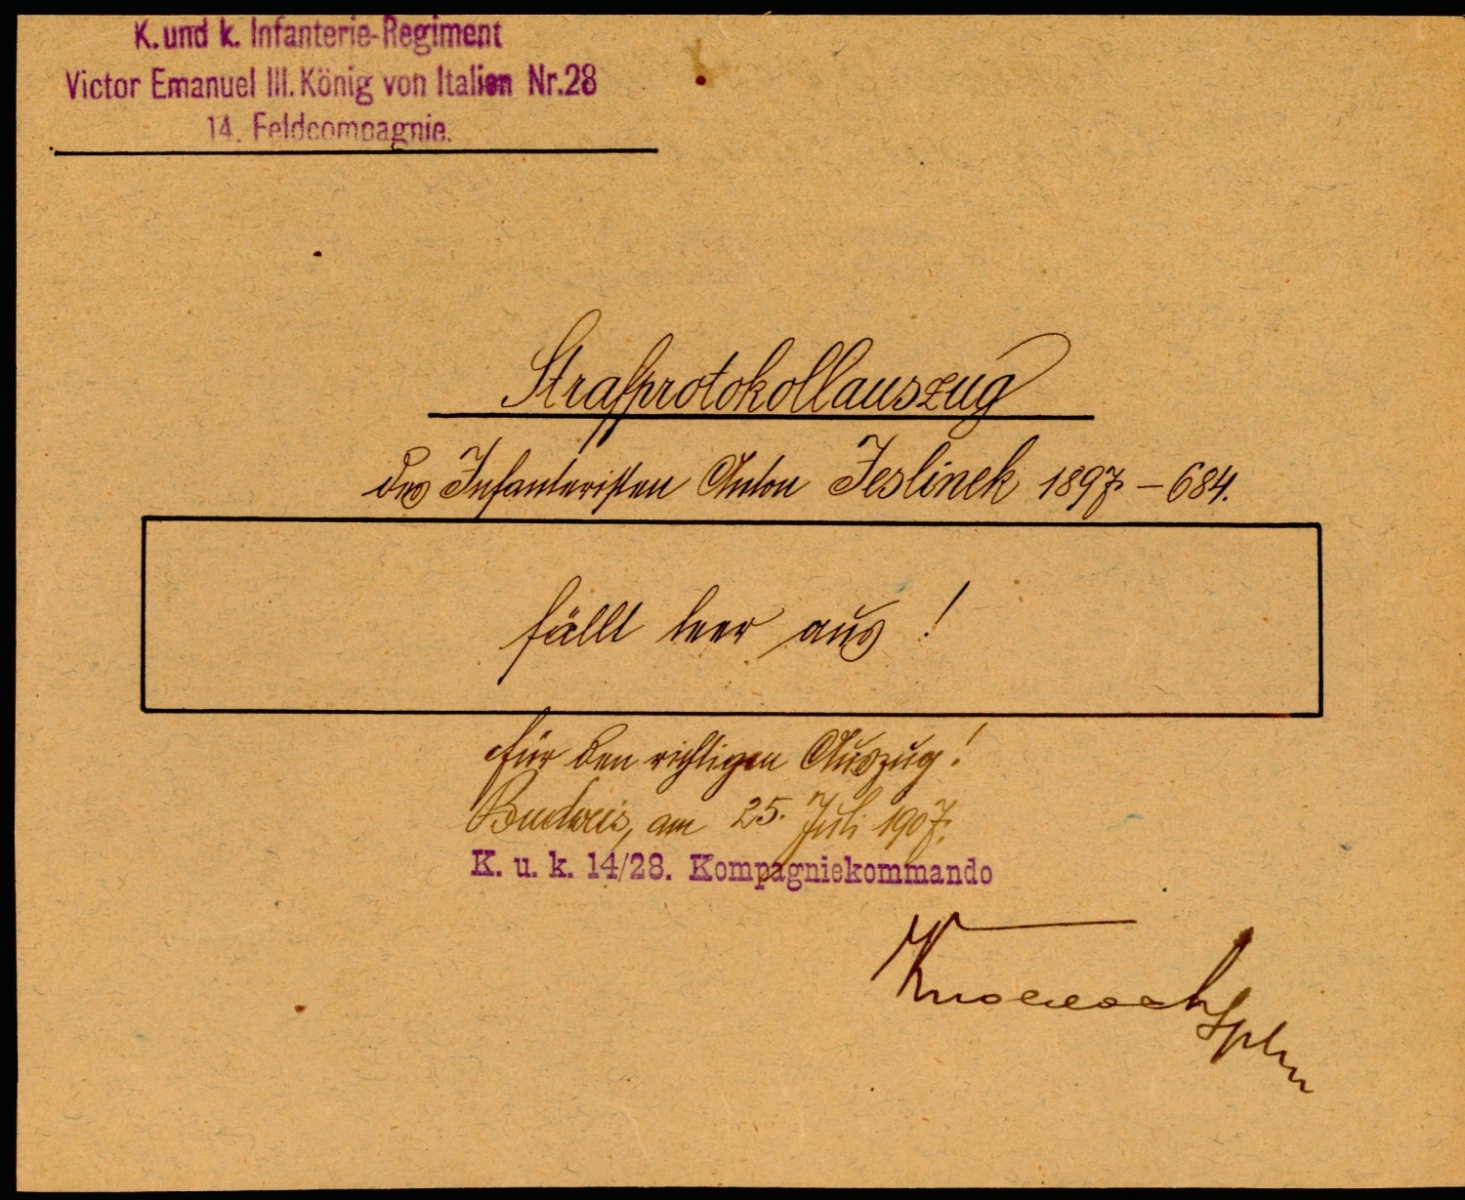 K. und k. Infanterie-Regiment
Victor Emanuel III. König von Italien Nr. 28
14. Feldcompagnie.
Strafprotokollauszug
des Infanteristen Anton Jeslinek 1897 – 684.
fällt leer aus!
für den richtigen Auszug!
Budweis, am 25. Juli 1907.
K. u. k. 14/28. Kompagniekommando